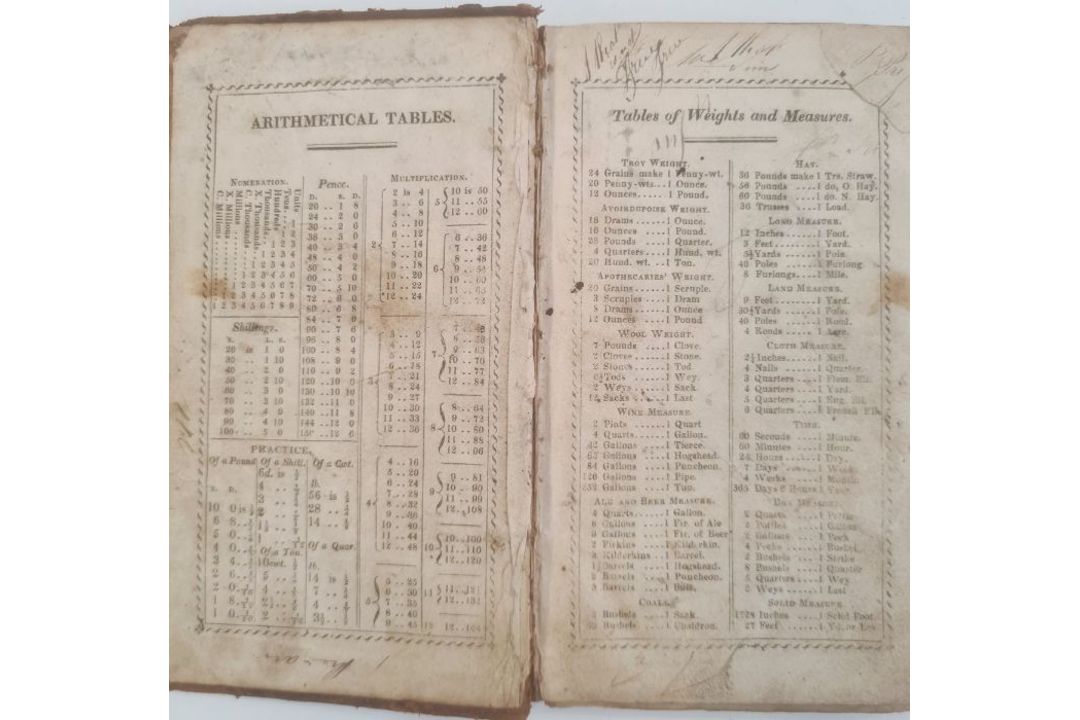 ARITHMETICAL TABLES.
NUMERATION.
Units
Tens
Hundreds
Thousands
X. Thousands
C. Thousands
Millions
X Millions
C Millions
1
1 2
1 2 3
1 2 3 4
1 2 3 4 5
1 2 3 4 5 6
1 2 3 4 5 6 7
1 2 3 4 5 6 7 8
1 2 3 4 5 6 7 8 9
Shillings.
S. L. S.
20 is 1 0
30 .. 1 10
40 .. 2 0
50 .. 2 10
60 .. 3 0
70 .. 3 10
80 .. 4 0
90 .. 4 10
100 .. 5 0
Pence.
D. S. D.
20 .. 1 8
24 .. 2 0
30 .. 2 6
36 .. 3 0
40 .. 3 4
48 .. 4 0
50 .. 4 2
60 .. 5 0
70 .. 5 10
72 .. 6 0
80 .. 6 8
84 .. 7 0
90 .. 7 6
96 .. 8 0
100 .. 8 4
108 .. 9 0
110 .. 9 2
120 .. 10 0
130 .. 10 10
132 .. 11 0
140 .. 11 8
144 .. 12 0
12 6
MULTIPLICATION.
2
2 is 4
3 .. 6
4 .. 8
5 .. 10
6 .. 12
7 .. 14
8 .. 16
9 .. 18
10 .. 20
11 .. 22
12 .. 24
3
3 .. 9
4 .. 12
5 .. 15
6 .. 18
7 .. 21
8 .. 24
9 .. 27
10 .. 30
11 .. 33
12 .. 36
4
4 .. 16
5 .. 20
6 .. 24
7 .. 28
8 .. 32
9 .. 36
10 .. 40
11 .. 44
12 .. 48
5
5 .. 25
6 .. 30
7 .. 35
8 .. 40
9 .. 45
5
10 is 50
11 .. 55
12 .. 60
6
6 .. 36
7 .. 42
8 .. 48
9 .. 54
10 .. 60
11 .. 66
12 .. 72
7
8
9 .. 63
10 .. 70
11 .. 77
12 .. 84
8
8 .. 64
9 .. 72
10 .. 80
11 .. 88
12 .. 96
9
9 .. 81
10 .. 90
11 .. 99
12 .. 108
10
10 .. 100
11 .. 110
12 .. 120
11
11 .. 121
12 .. 132
12 12 .. 144
PRACTICE.
Of a Pound.
S. D.
10 0 is ½
6 8
5 0
4 0
3 4
2 6
2 0
1 8
1 0
Of a Shill.
6d. is ½
4
3
2
Of a Ton.
10 cwt.
5
4
2½
2
Of a Cwt.
lb.
56 is ½
28 .. ¼
14 .. ⅛
Of a Quar.
lb.
14 is ½
7 .. ¼
4 .. 1/7
3½ .. ⅛
Tables of Weights and Measures.
TROY WEIGHT.
24 Grains make 1 Penny-wt.
20 Penny-wts...1 Ounce.
12 Ounces ....1 Pound.
AVOIRDUPOISE WEIGHT.
16 Drams ....1 Ounce.
16 Ounces ....1 Pound.
28 Pounds ....1 Quarter.
4 Quarters ....1 Hund. wt.
20 Hund. wt. ..1 Ton.
APOTHECARIES' WEIGHT.
20 Grains ......1 Scruple.
3 Scruples ....1 Dram
8 Drams ......1 Ounce
12 Ounces ....1 Pound
WOOL WEIGHT.
7 Pounds ....1 Clove.
2 Cloves ......1 Stone.
2 Stones ......1 Tod
6½ Tods ......1 Wey.
2 Weys ......1 Sack.
12 Sacks ......1 Last
WINE MEASURE.
2 Pints ......1 Quart
4 Quarts ......1 Gallon.
42 Gallons ....1 Tierce.
63 Gallons ....1 Hogshead.
84 Gallons ....1 Puncheon.
126 Gallons ....1 Pipe.
252 Gallons ....1 Tun.
ALE AND BEER MEASURE.
4 Quarts......1 Gallon.
8 Gallons ....1 Fir. of Ale
9 Gallons ....1 Fir. of Beer
2 Firkins ....1 Kilderkin.
2 Kilderkins ..1 Barrel.
1½ Barrels ....1 Hogshead.
2 Barrels ....1 Puncheon.
3 Barrels ....1 Butt.
COALS.
3 Bushels ....1 Sack.
36 Bushels ....1 Chaldron.
HAY.
36 Pounds make 1 Trs. Straw.
56 Pounds ....1 do. O. Hay.
60 Pounds ....1 do. N. Hay.
36 Trusses ....1 Load.
LONG MEASURE.
12 Inches ......1 Foot.
3 Feet ......1 Yard.
5½ Yards ......1 Pole.
40 Poles ......1 Furlong.
8 Furlongs ....1 Mile.
LAND MEASURE.
9 Feet ......1 Yard.
30¼ Yards ......1 Pole.
40 Poles ......1 Rood.
4 Roods ......1 Acre.
CLOTH MEASURE.
2¼ Inches......1 Nail.
4 Nails ......1 Quarter.
3 Quarters ....1 Flem. Ell.
4 Quarters ....1 Yard.
5 Quarters ....1 Eng. Ell
6 Quarters ....1 French Ell.
TIME.
60 Seconds ....1 Minute.
60 Minutes ....1 Hour.
24 Hours ......1 Day.
7 Days ......1 Week
4 Weeks ......1 Month
365 Days 6 Hours 1 Year.
DRY MEASURE.
2 Quarts ......1 Pottle
2 Pottles ......1 Gallon
2 Gallons ....1 Peck
4 Pecks ......1 Bushel
2 Bushels ....1 Strike
8 Bushels ....1 Quarter
5 Quarters ....1 Wey
2 Weys ......1 Last
SOLID MEASURE
1728 Inches ....1 Solid Foot
27 Feet ......1 Yd. or